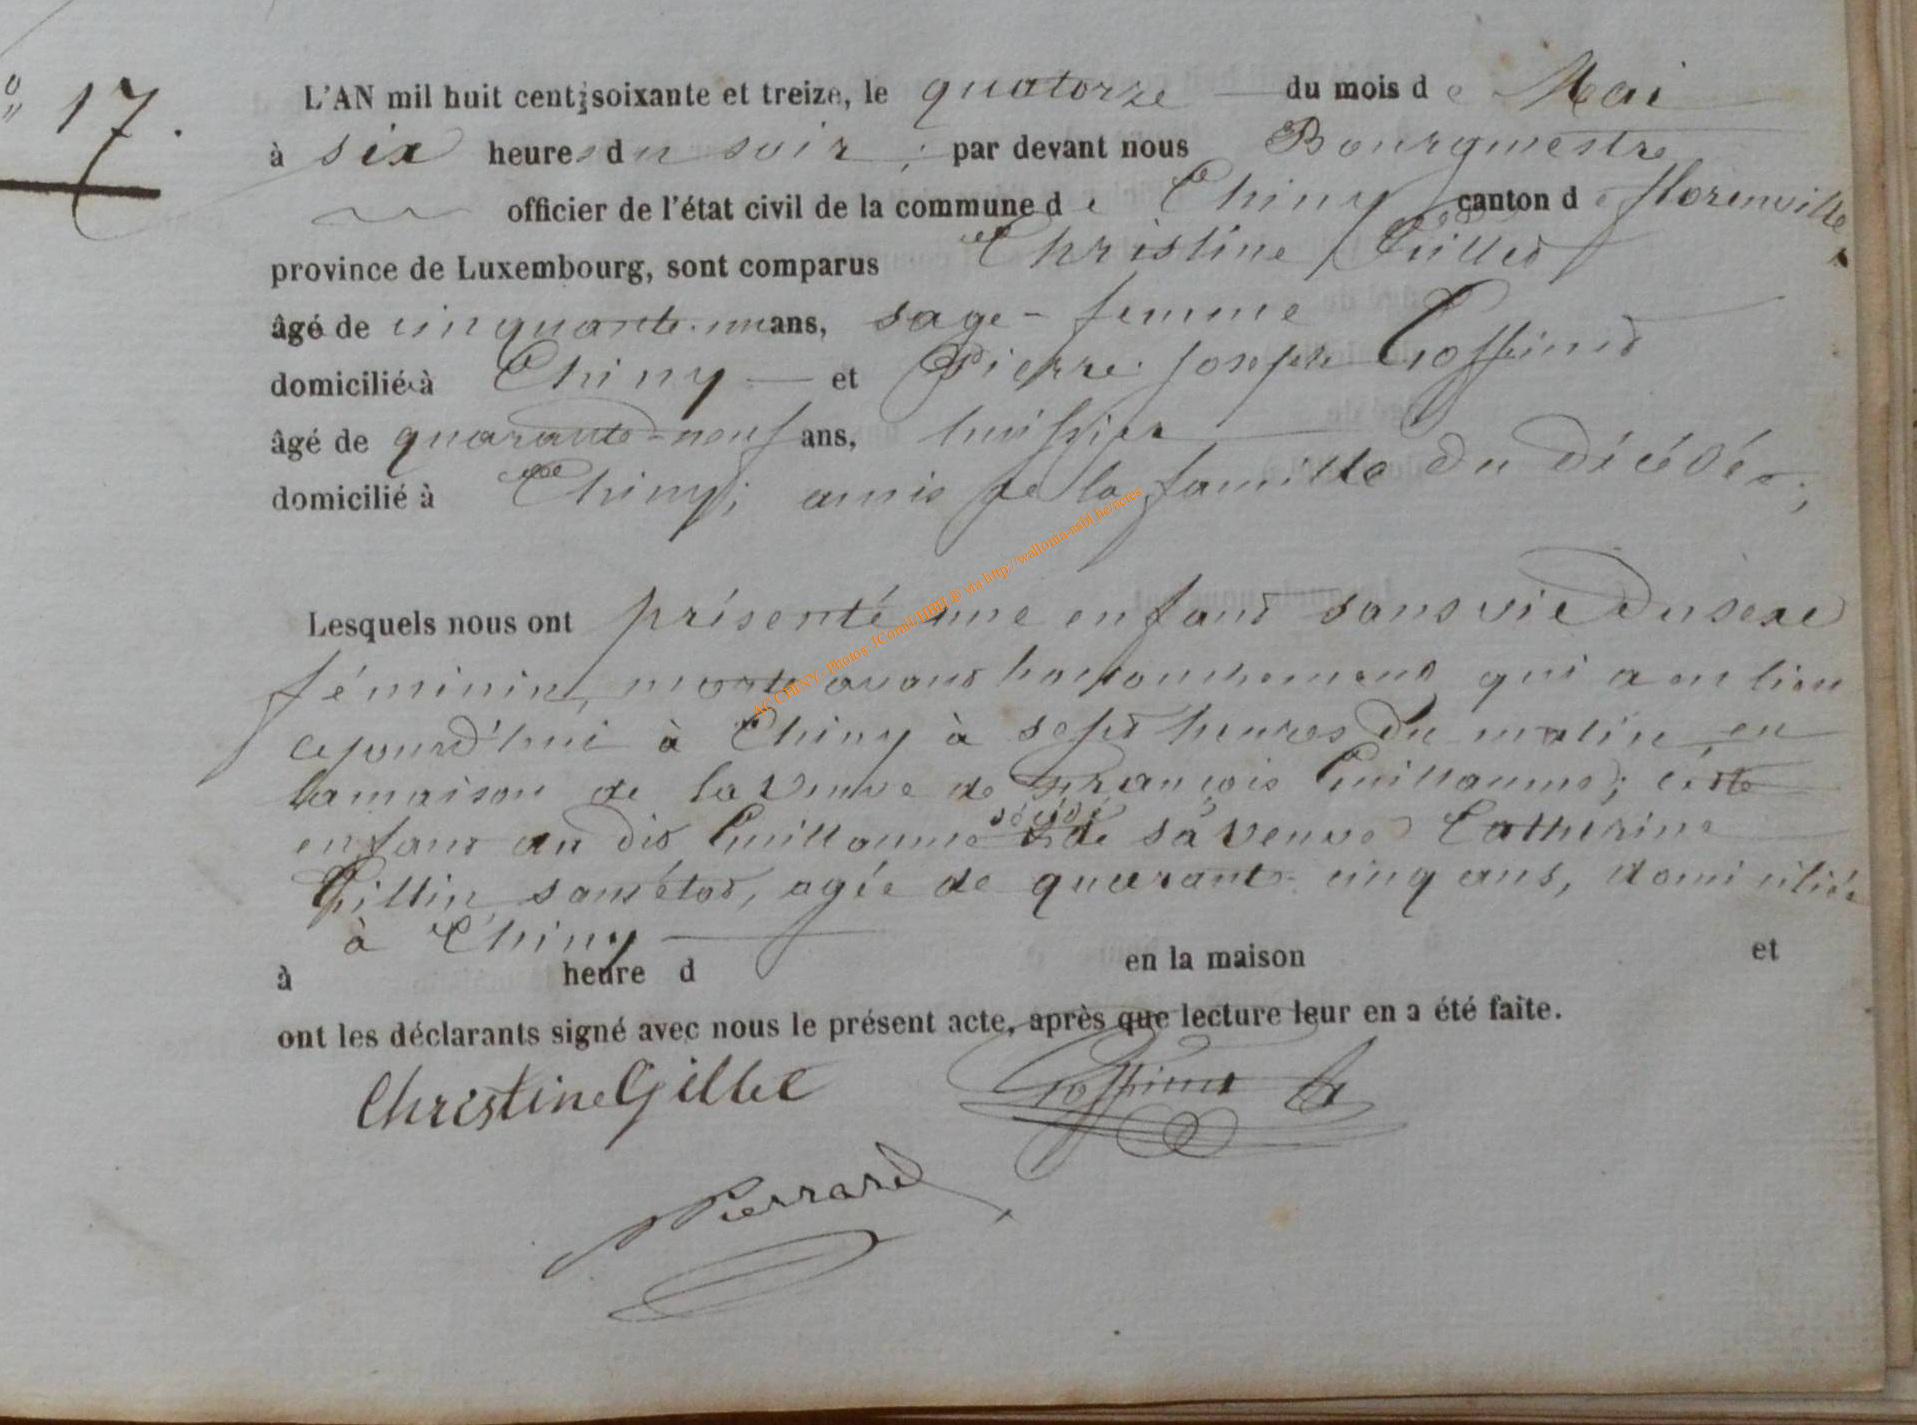 N° 17.
L'AN mil huit cent soixante et treize, le quatorze du mois de Mai
à six heures du soir ; par devant nous Bourgmestre
officier de l'état civil de la commune de Chiny canton de Florenville
province de Luxembourg, sont comparus Christine Gilles
âgé de cinquante-un ans, sage-femme
domiciliés à Chiny et Pierre Joseph Goffinet
âgé de quarante-neuf ans, huissier
domicilié à Chiny; amis de la famille du décédé;
Lesquels nous ont présenté une enfant sans vie du sexe
féminin, morte avant l'accouchement qui a eu lieu
cejourd'hui à Chiny à sept heures du matin, en
la maison de la veuve de François Guillaume; cette
enfant au dit Guillaume décédé de sa veuve Catherine
Gillin, sans état, agée de quarante-cinq ans, domiciliée
à Chiny
à heure d en la maison et
ont les déclarants signé avec nous le présent acte, après que lecture leur en a été faite.
Christine Gillet Goffinet
Pierrard
AC CHINY - Photos via http://wallonia-asbl.be/actes